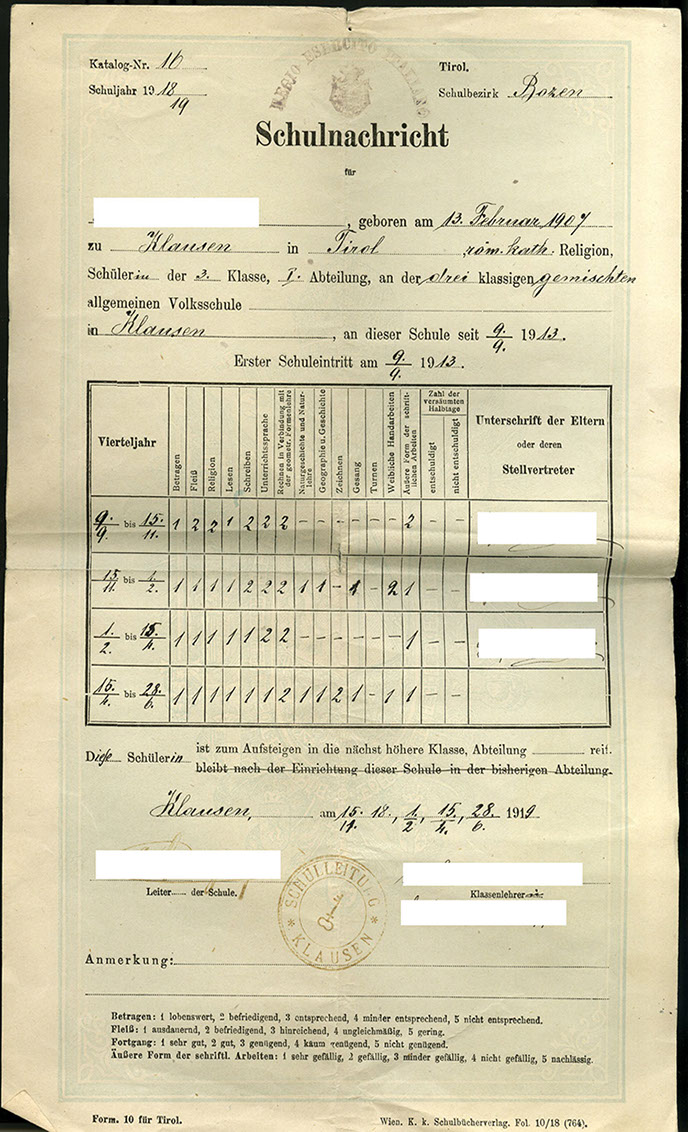 REGIO ESERCITO ITALIANO
Katalog-Nr. 16
Tirol.
Schuljahr 1918/19
Schulbezirk Bozen
Schulnachricht
für
, geboren am 13. Februar 1907
zu Klausen in Tirol röm. kath. Religion,
Schülerin der 3. Klasse, I. Abteilung, an der drei klassigen gemischten
allgemeinen Volksschule
in Klausen, an dieser Schule seit 9./9. 1913.
Erster Schuleintritt am 9./9. 1913.
Vierteljahr
Betragen
Fleiß
Religion
Lesen
Schreiben
Unterrichtssprache
Rechnen in Verbindung mit der geometr. Formenlehre
Naturgeschichte und Naturlehre
Geographie u. Geschichte
Zeichnen
Gesang
Turnen
Weibliche Handarbeiten
Äußere Form der schriftlichen Arbeiten
Zahl der versäumten Halbtage
entschuldigt
nicht entschuldigt
Unterschrift der Eltern
oder deren
Stellvertreter
9./9. bis 15./11. 1 2 2 1 2 2 2 – – – – – – 2 – –
15/11. bis 1./2. 1 1 1 1 2 2 2 1 1 – 1 – 2 1 – –
1./2. bis 15./4. 1 1 1 1 1 2 2 – – – – – – 1 – –
15./4. bis 28./6. 1 1 1 1 1 1 2 1 1 2 1 – 1 1 – –
Diese Schülerin ist zum Aufsteigen in die nächst höhere Klasse, Abteilung reif.
bleibt nach der Einrichtung dieser Schule in der bisherigen Abteilung.
Klausen, am 15./11. 18., 1./2, 15./4., 28./6. 1919
Leiter der Schule.
Klassenlehrer
SCHULLEITUNG
* KLAUSEN *
Anmerkung:
Betragen: 1 lobenswert, 2 befriedigend, 3 entsprechend, 4 minder entsprechend, 5 nicht entsprechend.
Fleiß: 1 ausdauernd, 2 befriedigend, 3 hinreichend, 4 ungleichmäßig, 5 gering.
Fortgang: 1 sehr gut, 2 gut, 3 genügend, 4 kaum genügend, 5 nicht genügend.
Äußere Form der schriftl. Arbeiten: 1 sehr gefällig, 2 gefällig, 3 minder gefällig, 4 nicht gefällig, 5 nachlässig.
Form. 10 für Tirol.
Wien. K. k. Schulbücherverlag. Fol. 10/18 (764).